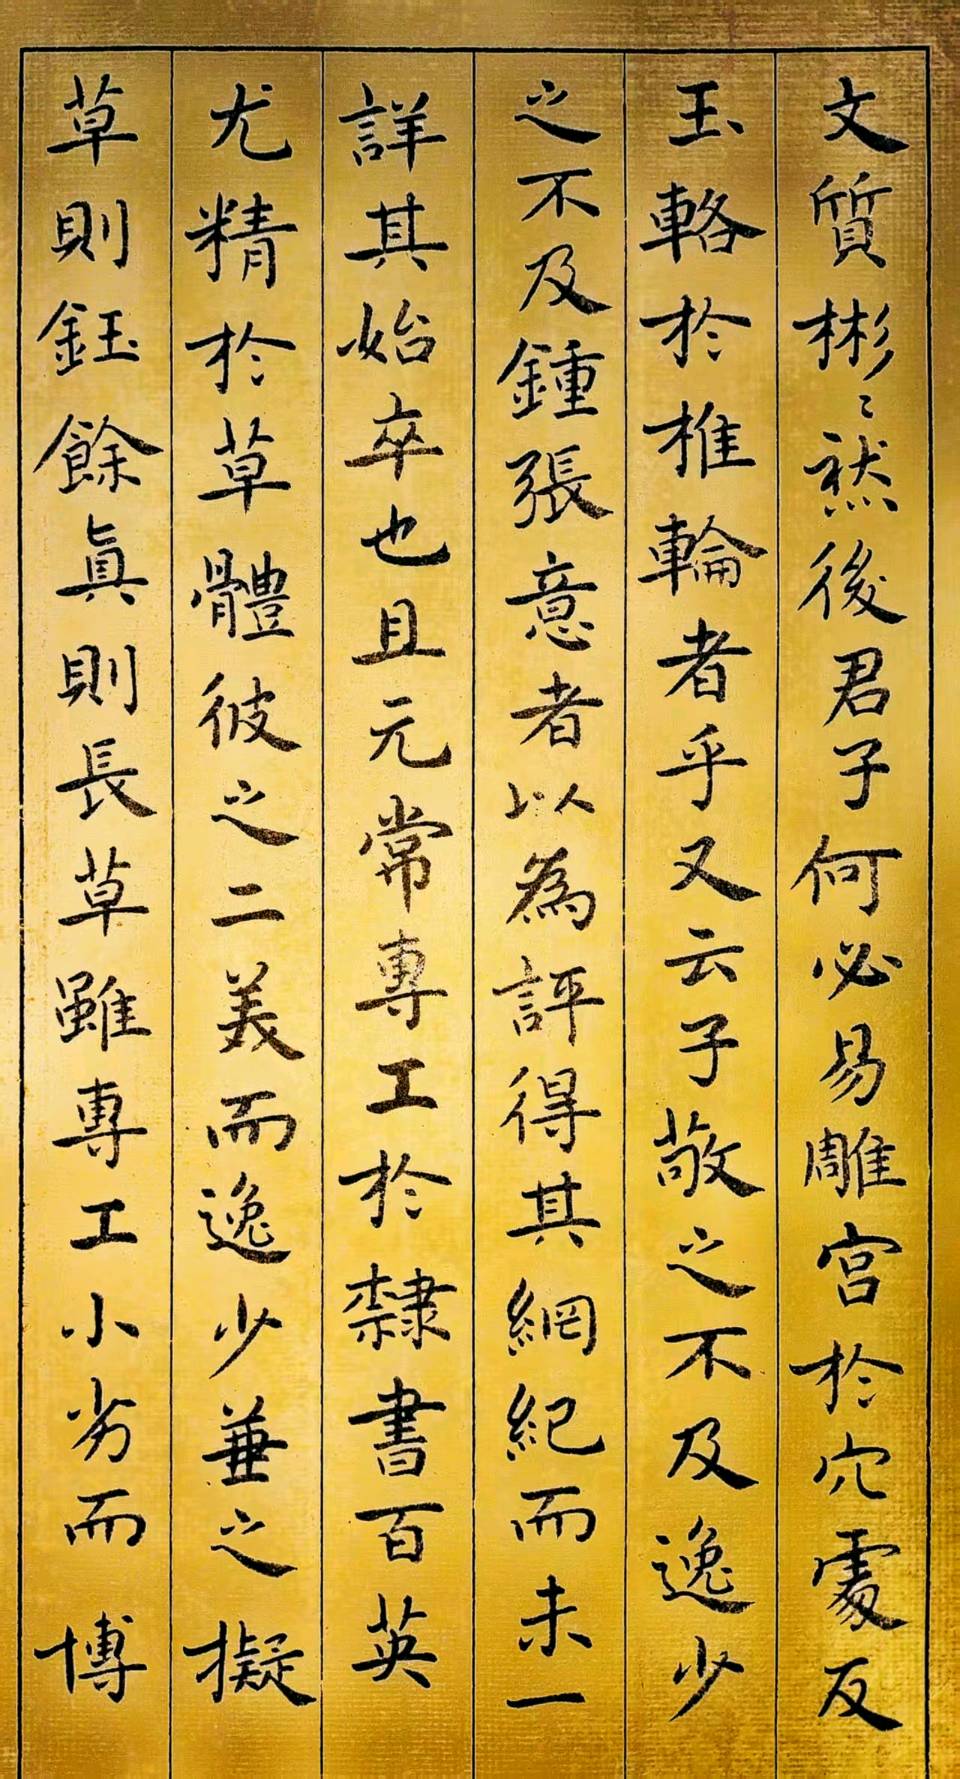 文質彬〻然後君子何必易雕宮於穴處反
玉輅於椎輪者乎又云子敬之不及逸少
之不及鍾張意者以為評得其網紀而未一
詳其始卒也且元常專工於隸書百英
尤精於草體彼之二美而逸少兼之擬
草則鈺餘真則長草雖專工小劣而博